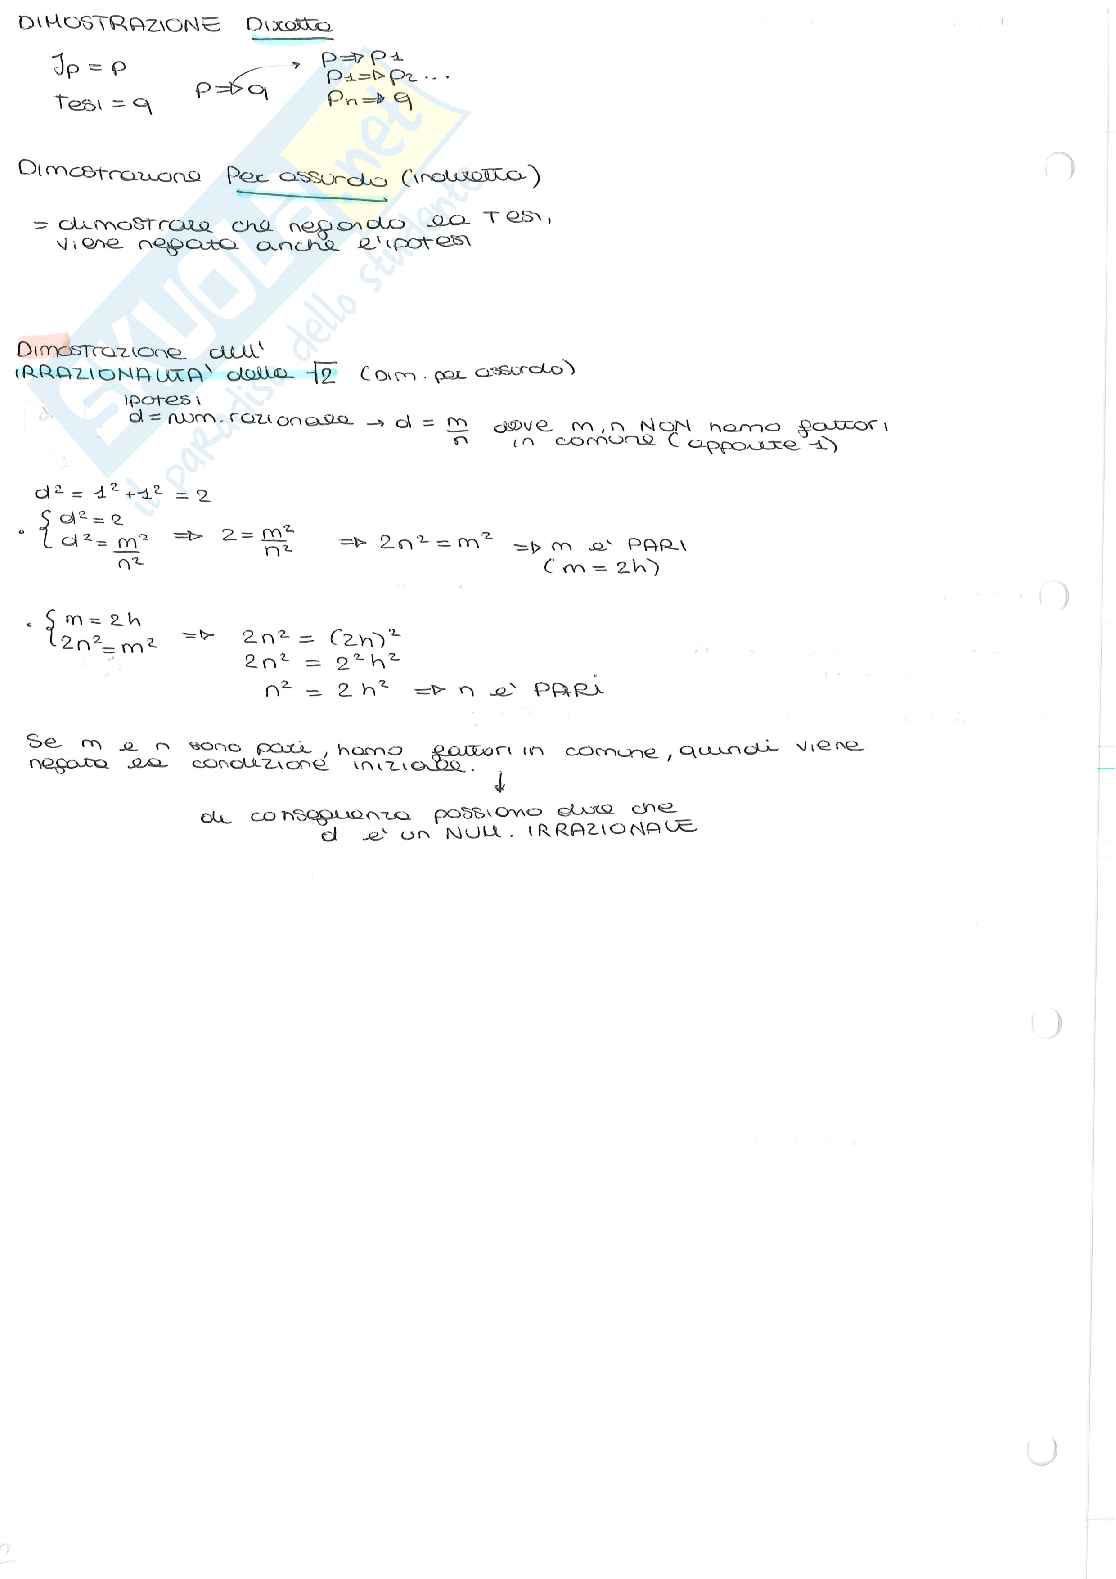 DIMOSTRAZIONE Diretta
Ip = p
Tesi = q
p => q
p => p1
p1 => p2 ...
pn => q
Dimostrazione Per assurdo (indiretta)
= dimostrare che negando la Tesi,
viene negata anche l'ipotesi
Dimostrazione dell'
IRRAZIONALITA' della √2 (Dim. per assurdo)
ipotesi
d = num. razionale → d = m/n dove m, n NON hanno fattori
in comune (oppure 1)
d² = 1² + 1² = 2
• { d² = 2
d² = m²/n² => 2 = m²/n² => 2n² = m² => m è PARI
(m = 2h)
• { m = 2h
2n² = m² => 2n² = (2h)²
2n² = 2²h²
n² = 2h² => n è PARI
Se m e n sono pari, hanno fattori in comune, quindi viene
negata la condizione iniziale.
↓
di conseguenza possiamo dire che
d è un NUM. IRRAZIONALE
SKUOLA.net
il paradiso dello studente